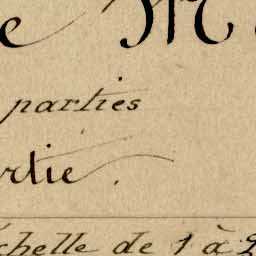 e M
parties
rtie.
chelle de 1 à 2